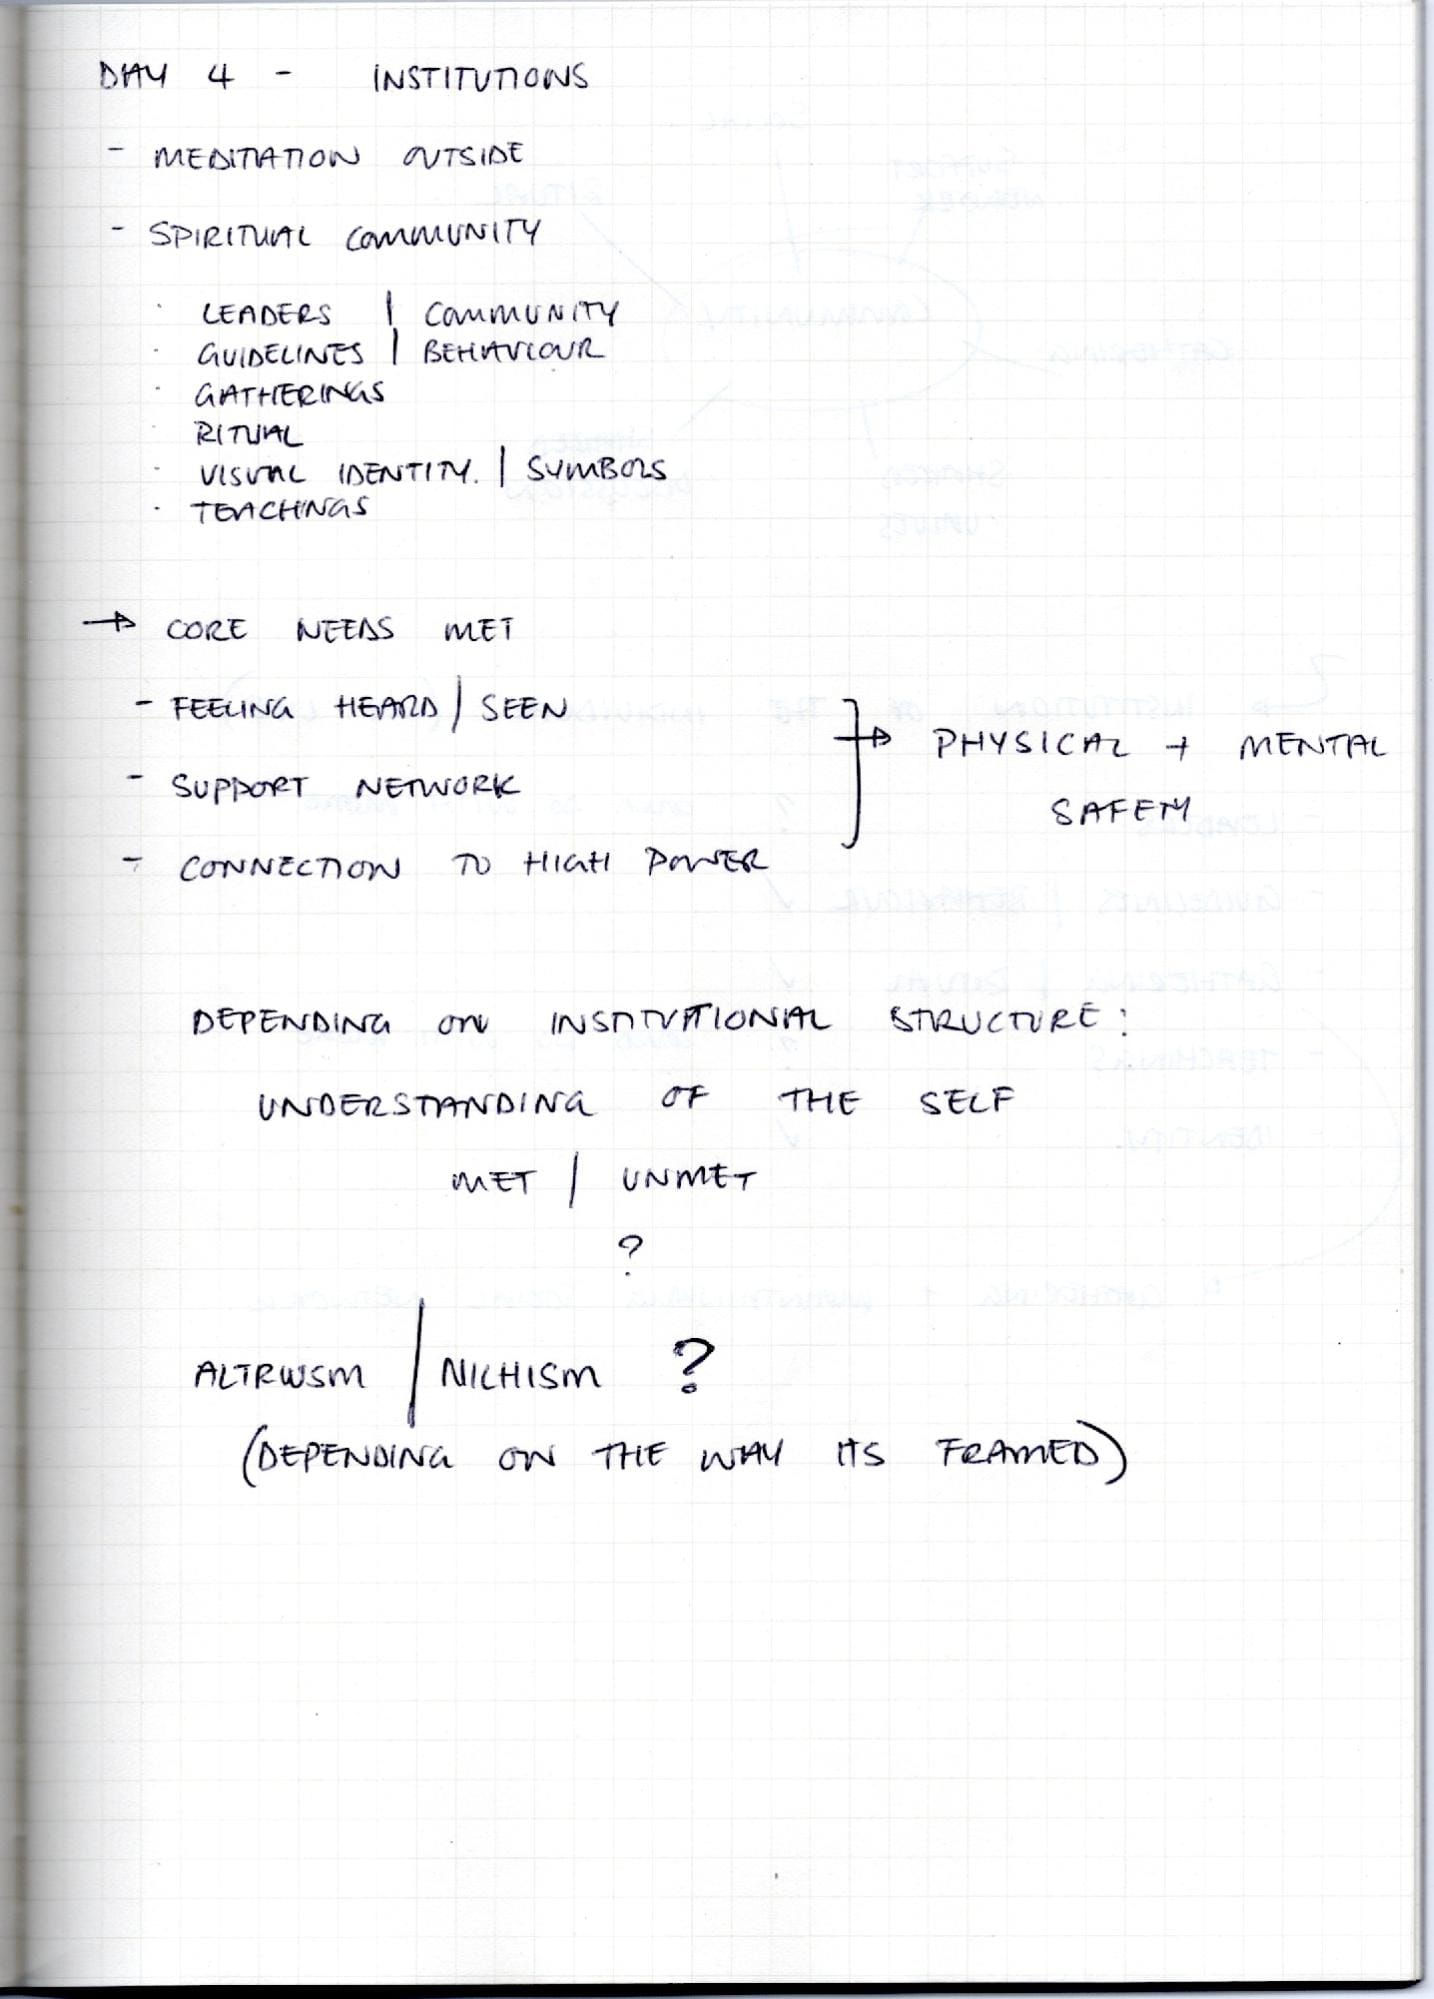 DAY 4 - INSTITUTIONS
- MEDITATION OUTSIDE
- SPIRITUAL COMMUNITY
· LEADERS | COMMUNITY
· GUIDELINES | BEHAVIOUR
· GATHERINGS
· RITUAL
· VISUAL IDENTITY. | SYMBOLS
· TEACHINGS
→ CORE NEEDS MET
- FEELING HEARD / SEEN
- SUPPORT NETWORK
- CONNECTION TO HIGH POWER
→ PHYSICAL + MENTAL
SAFETY
DEPENDING ON INSTITUTIONAL STRUCTURE:
UNDERSTANDING OF THE SELF
MET / UNMET
?
ALTRUISM / NICHISM ?
(DEPENDING ON THE WAY ITS FRAMED)